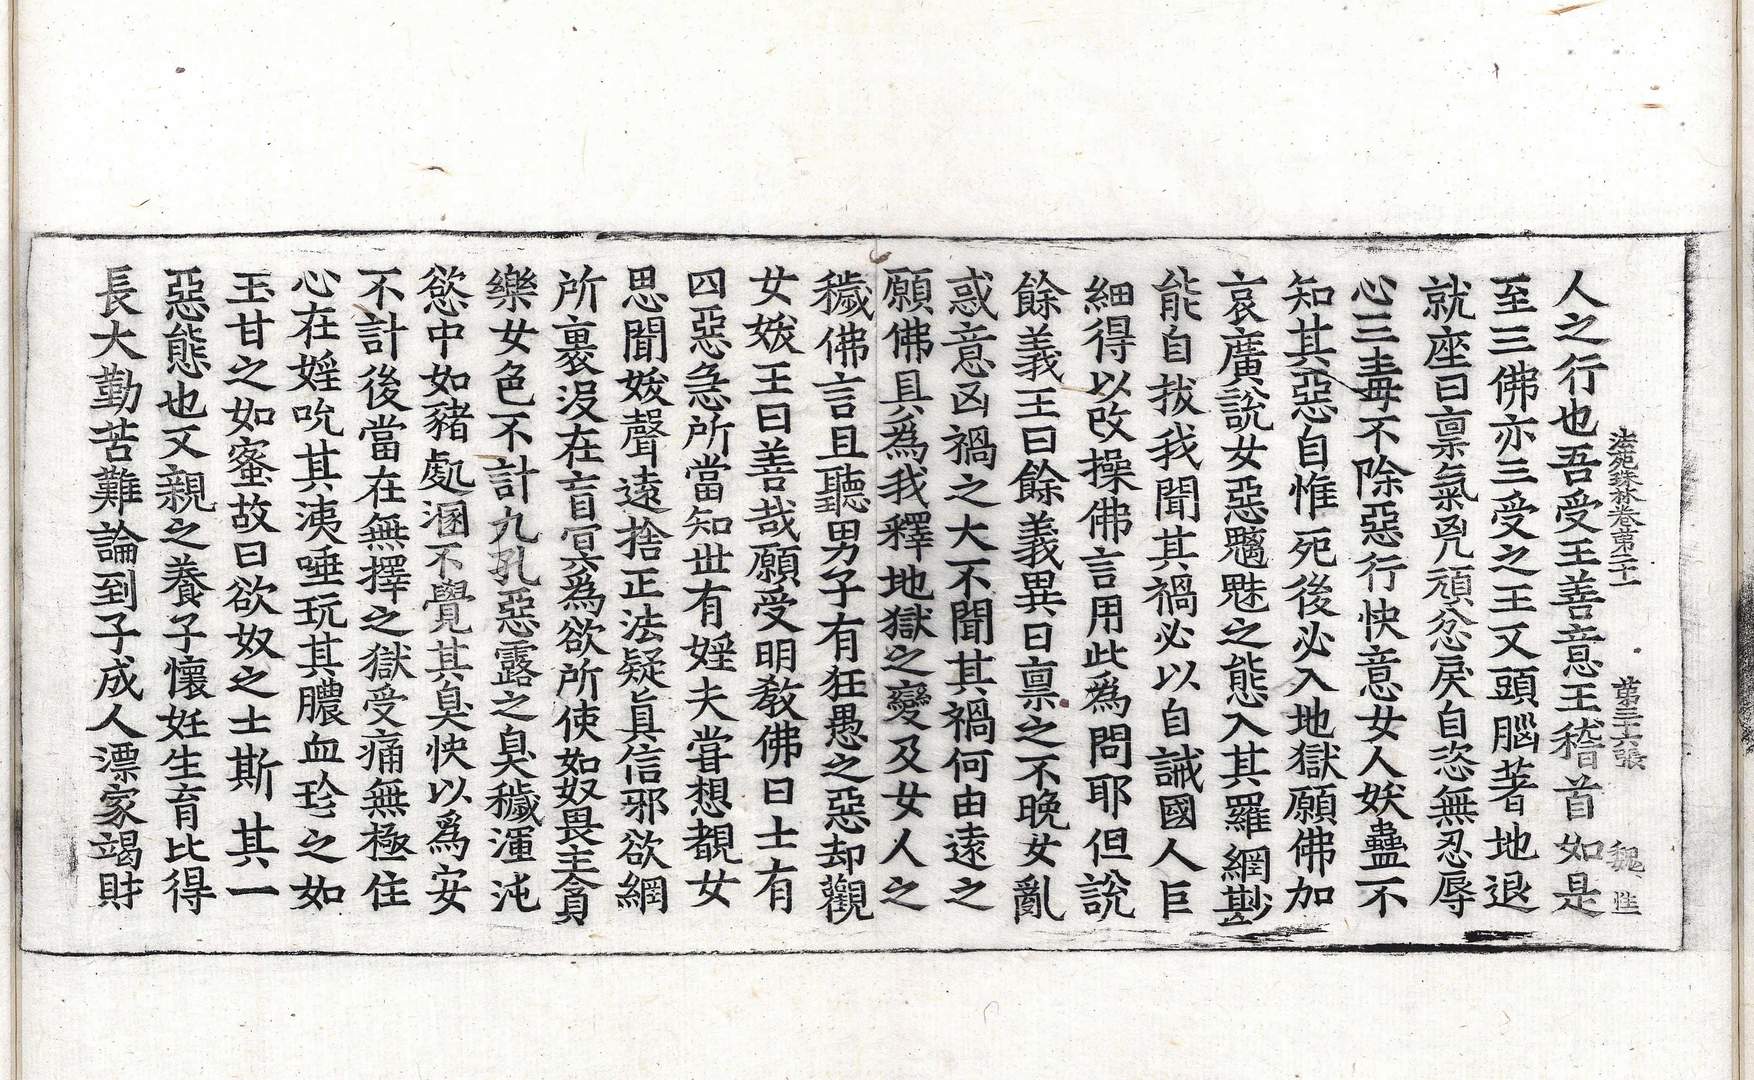 法苑珠林卷第二十一　第三十六張　魏性
人之行也吾受王善意王稽首如是
至三佛亦三受之王又頭腦著地退
就座曰禀氣兇頑忿戾自恣無忍辱
心三毒不除惡行快意女人妖蠱不
知其惡自惟死後必入地獄願佛加
哀廣說女惡魑魅之態入其羅網尠
能自拔我聞其禍必以自誡國人巨
細得以改操佛言用此爲問耶但說
餘義王曰餘義異日禀之不晚女亂
惑意凶禍之大不聞其禍何由遠之
願佛具爲我釋地獄之變及女人之
穢佛言且聽男子有狂愚之惡却觀
女妭王曰善哉願受明教佛曰士有
四惡急所當知世有婬夫甞想覩女
思聞妭聲遠捨正法疑眞信邪欲網
所裹沒在盲冥爲欲所使如奴畏主貪
樂女色不計九孔惡露之臭穢渾沌
慾中如豬處溷不覺其臭快以爲安
不計後當在無擇之獄受痛無極住
心在婬吮其洟唾玩其膿血珍之如
玉甘之如蜜故曰欲奴之士斯其一
惡態也又親之養子懷妊生育比得
長大勤苦難論到子成人漂家竭財